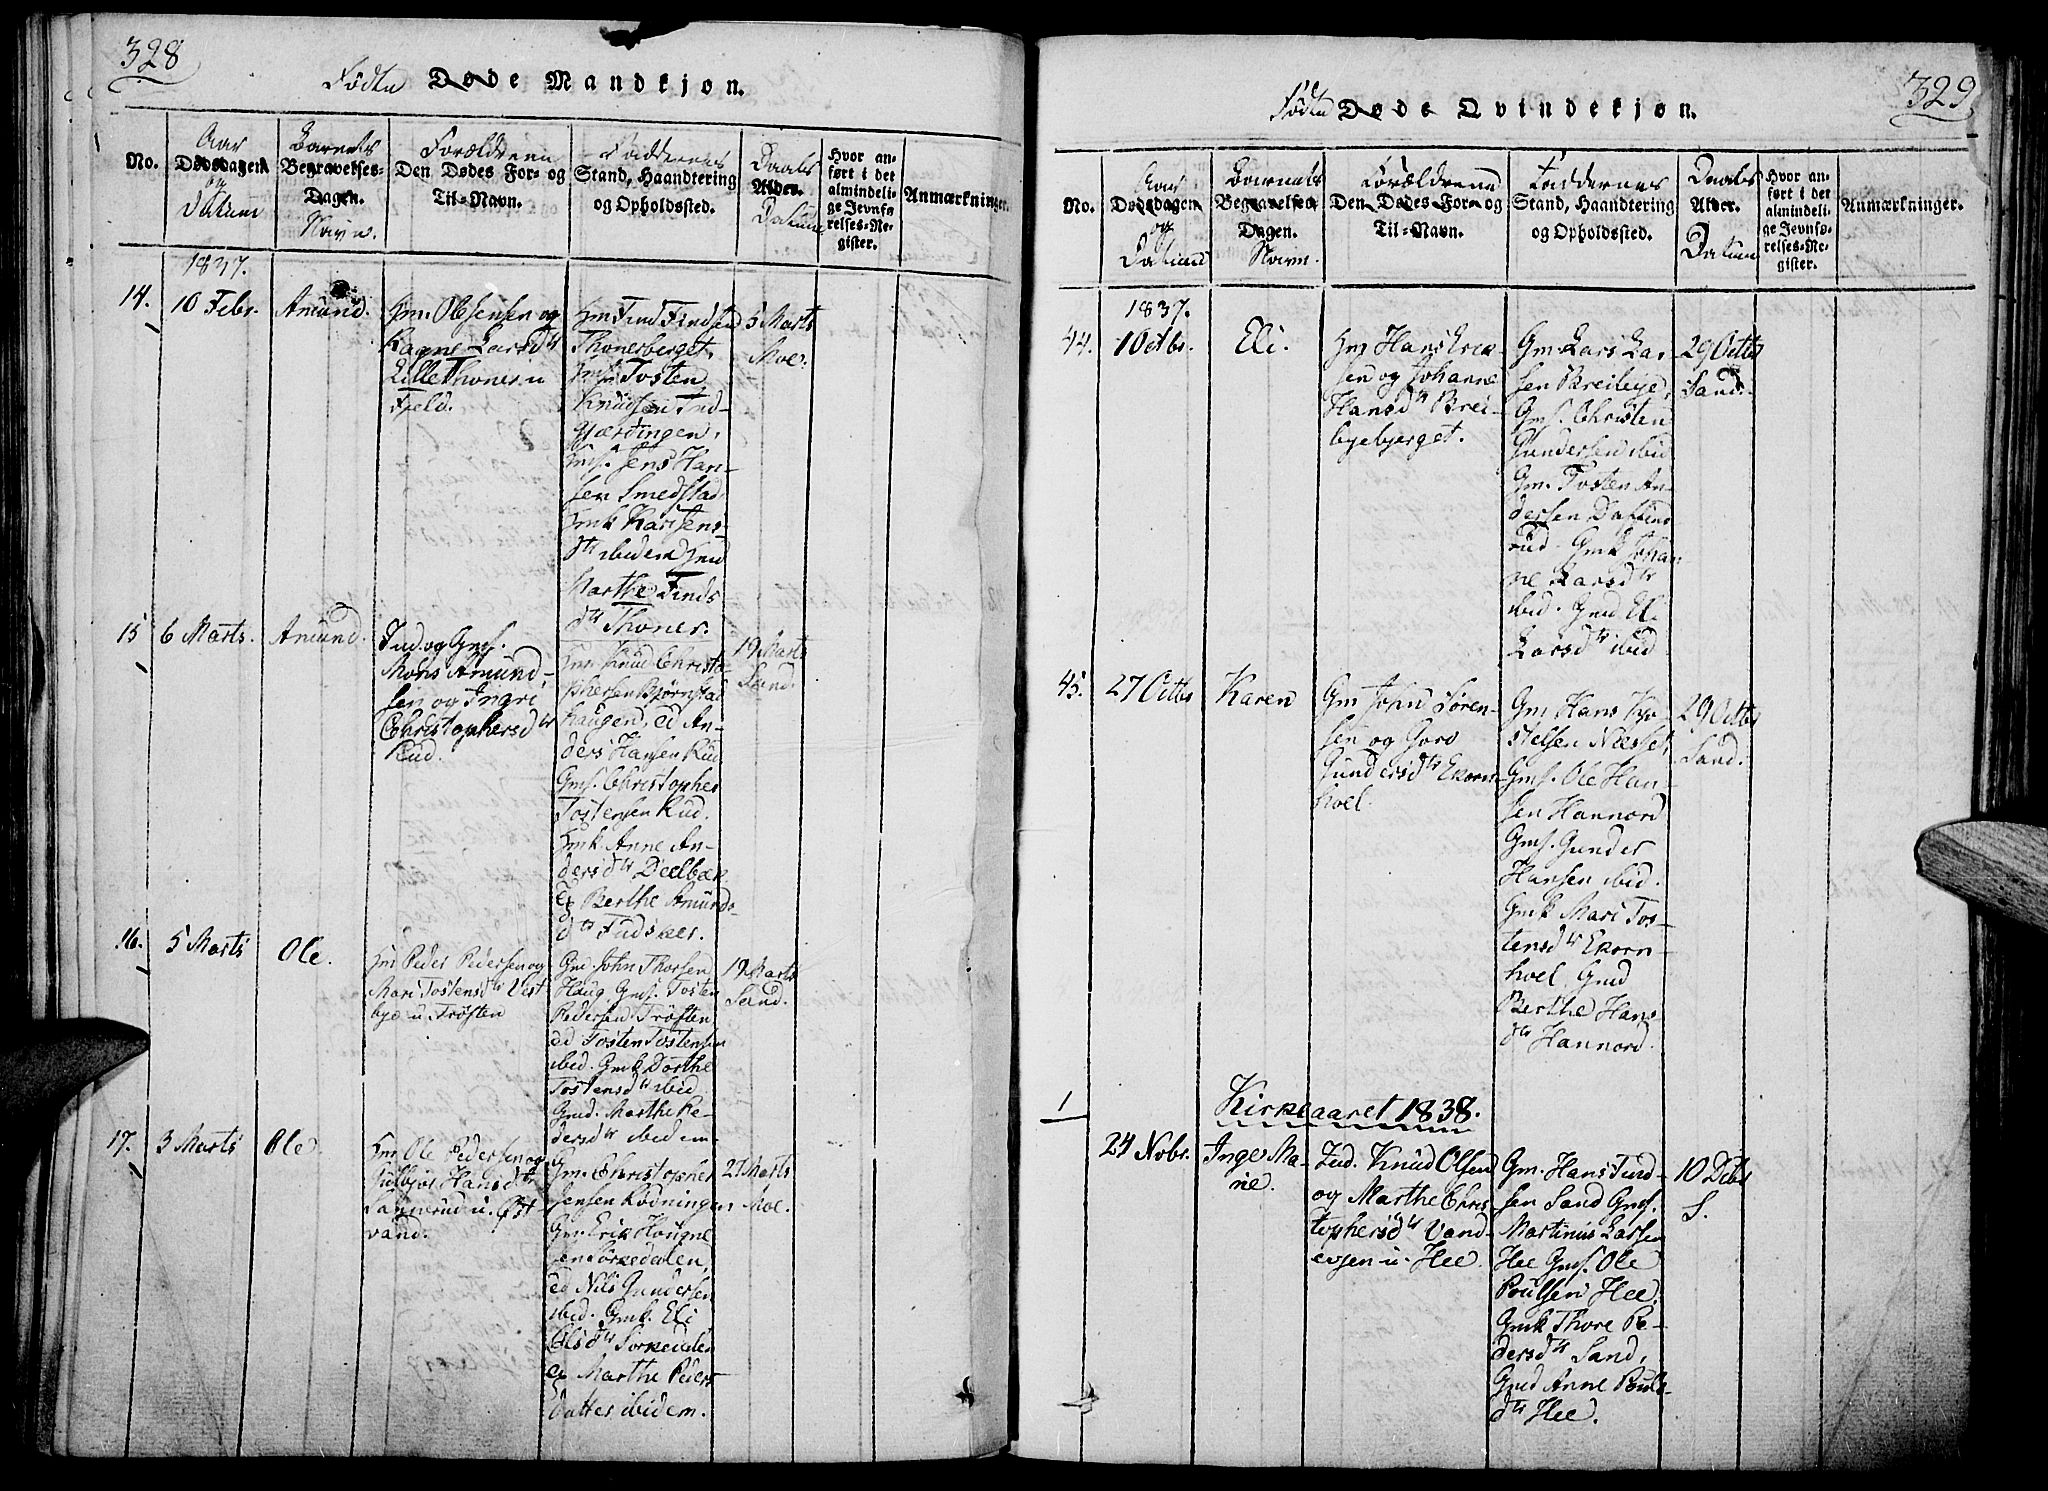 328
Fødte Døde Mandkjøn.
No.
Aar
Dødsdagen
og
Datum
Barnets
Begravelses-
Dagen.
Navn.
Forældrene
Den Dødes For- og
Til-Navn.
Faddernes
Stand, Haandtering
og Opholdssted.
Daabs
Alder.
Datum
Hvor an-
ført i det
almindeli-
ge Jevnfø-
relses-Re-
gister.
Anmærkninger.
1837.
14.
10 Febr.
Amund.
Gm. Ole Jensen og
Ragne Larsdtr
Lille Thoner u
Fjeld.
Gm Find Findsen
Thonerberget,
Gmf. Tosten
Knudsen Ind-
gjærdingen,
Gmf. Jens Han-
sen Smedstad
Gmk Kari Jens-
dtr ibidem Gmd
Marthe Finds
dtr Thoner.
5 Marts
Moe.
15
6 Marts.
Amund.
Ind. og Gmf.
Mons Amund-
sen og Ingri
Christophersdtr
Rud.
Gm Knud Christo-
phersen Bjørnstad
haugen, ed An-
ders Hansen Rud
Gmf. Christopher
Tostensen Rud.
Gmk Anne An-
dersdtr Deelbæk
Eg Berthe Amunds
dtr Fudsker.
19 Marts
Sand.
16.
5 Marts
Ole.
Gm Peder Pedersen og
Mari Tostensdtr Vest
bye u. Trøften
Gm. John Thorsen
Haug Gmf. Tosten
Pedersen Trøften
ed Tosten Tostensen
ibid. Gmk Dorthe
Tostensdtr ibid
Gmd. Marthe Pe-
dersdtr ibidem
19 Marts
Sand.
17.
3 Marts
Ole.
Gm Ole Pedersen og
Gulbjør Hansdtr
Sannerud u. Øst-
vand.
Gm. Christopher
Jensen Rødningen
Gm. Erik Hougne
sen Sørkedalen,
ed Nils Gundersen
ibid. Gmk. Eli
Olsdtr Sørkedalen
eg Marthe Peders
datter ibidem.
27 Marts
Moe.
329
Fødte Døde Qvindekjøn.
No.
Aar
Dødsdagen
og
Datum
Barnets
Begravelses
Dagen.
Navn.
Forældrene
Den Dødes For- og
Til-Navn.
Faddernes
Stand, Haandtering
og Opholdssted.
Daabs
Alder.
Datum
Hvor an-
ført i det
almindeli-
ge Jevnfø-
relses-Re-
gister.
Anmærkninger.
1837.
44.
1 Octbr.
Eli.
Gm Hans Erik-
sen og Johanne
Hansdtr Brei-
byebjerget.
Gm. Lars Lar-
sen Breibye,
Gmf. Christen
Gundersen ibid
Gm. Tosten An-
dersen Daffins-
rud. Gmk Johan
ne Larsdtr
ibid. Gmd Eli
Larsdtr ibid
29 Octbr
Sand.
45.
27 Octbr
Karen
Gm John Søren-
sen og Goro
Gundersdtr Ekorn-
hoel.
Gm Hans Kjø-
stelsen Næsset,
Gmf. Ole Han-
sen Hannord
Gmf. Gunder
Hansen ibid.
Gmk Mari Tos-
tensdtr Ekorn
hoel. Gmd
Berthe Hans-
dtr Hannord.
29 Octbr
Sand.
Kirkeaaret 1838.
1
24 Novbr.
Inger Ma-
rie.
Ind. Knud Olsen
og Marthe Chris
tophersdtr Vand-
ersen u. Hee
Gm. Hans Find-
sen Sand Gmf.
Martinus Larsen
Hee Gmf. Ole
Poulsen Hee,
Gmk Thore Pe-
dersdtr Sand,
Gmd Anne Pouls-
dtr Hee.
10 Decbr
S.